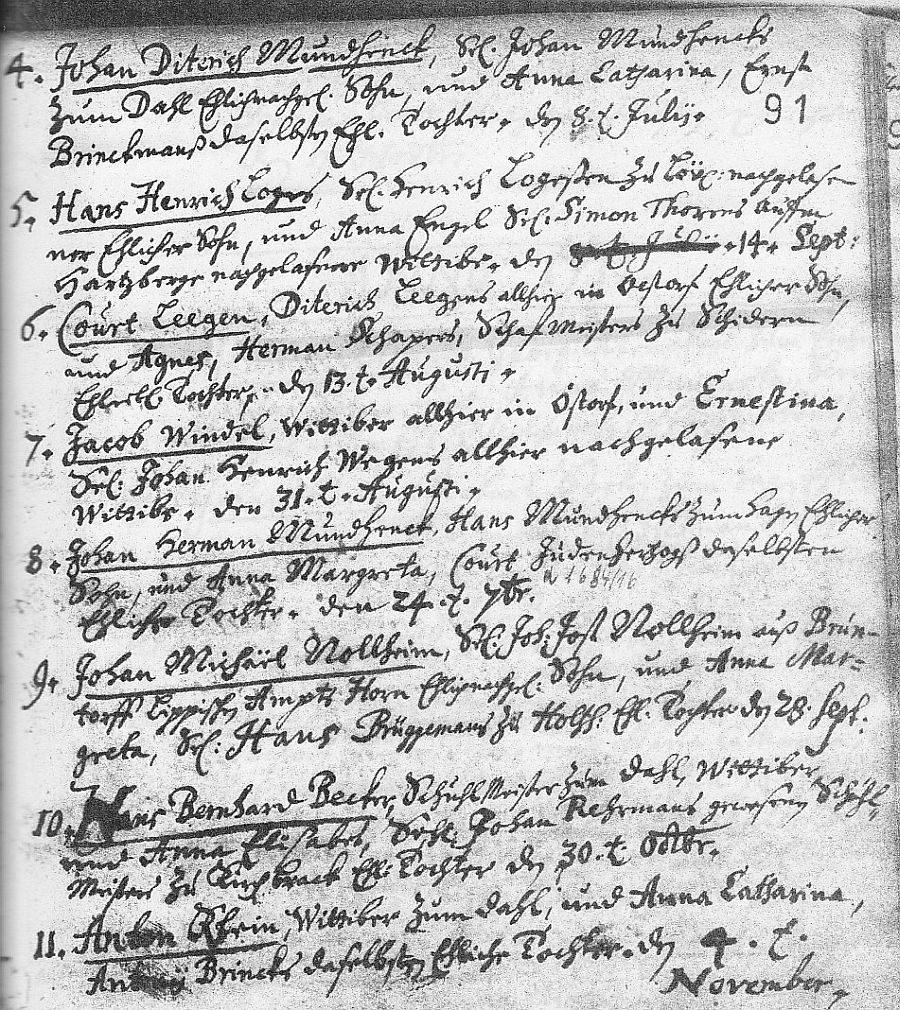 4. Johan Diterich Mundhenck, Sel. Johan Mundhencks
zum Dahl Ehlichnachgel. Sohn, und Anna Catharina, Ernst
Brinckmanß daselbsten Ehl. Tochter. den 8. t. Julij.
91
5. Hans Henrich Loges, Sel. Henrich Logesten zu nachgelase
ner Ehlicher Sohn, und Anna Engel Sel. Simon Thorens Auffm
Hartzberge nachgelasene Wittibe. den 14. Sept:
6. Court Leegen, Diterich Leegens allhie in Oestorf Ehlicher Sohn,
und Agnes, Herman Schapers, Schaf Meisters zu Schidern
Tochter, den 13. t. Augusti.
7. Jacob Windel, Wittiber allhier in Östorf, und Ernestina,
Sel. Johan Henrich Wegens allhier nachgelasene
Wittibe. den 31. t. Augusti.
8. Johan Herman Mundhenck, Hans Mundhencks zum Hagen Ehlicher
Sohn, und Anna Margreta, Court Judenhertzogß daselbsten
Ehlicher Tochter. den 24. t. 7br.
1684/16
9. Johan Michäel Nollheim, Sel. Joh. Jost Nollheim auß Brün-
torff Lippischen Ampts Horn Ehlignachgel. Sohn, und Anna Mar-
greta, Sel. Hans Brüggemans zu Holtzh. El. Tochter den 28. Sept.
10. Hans Bernhard Becker, Schuhl Meister zum Dahl, Wittiber,
und Anna Elisabet, Sehl. Johan Rehrmans gewesenen Schuhl
Meisters zu Kirchbrack Ehl. Tochter den 30. t. Octbr.
11. Anton Rhein, Wittiber zum Dahl, und Anna Catharina,
Brincks daselbsten Ehliche Tochter. den 4. t.
November.